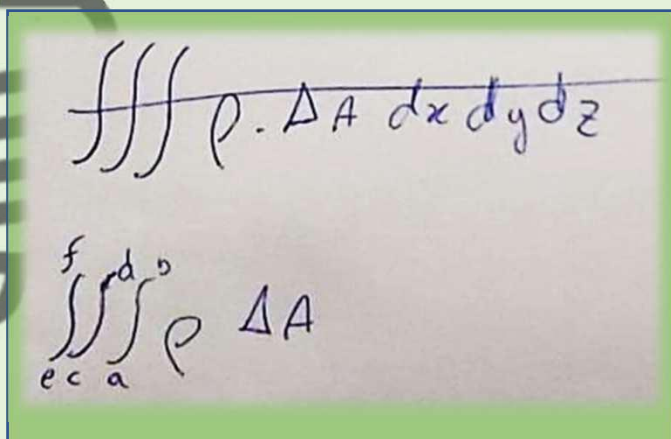 ∭ ρ . ΔA dx dy dz
∫_e^f ∫_c^d ∫_a^b ρ ΔA